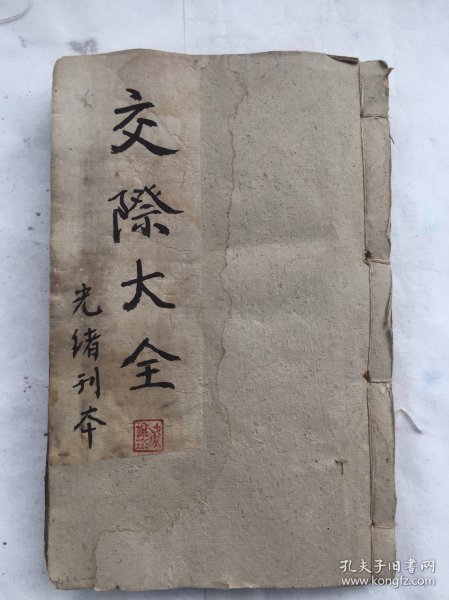 交際大全
光緒刊本
孔夫子旧书网
www.kongfz.com